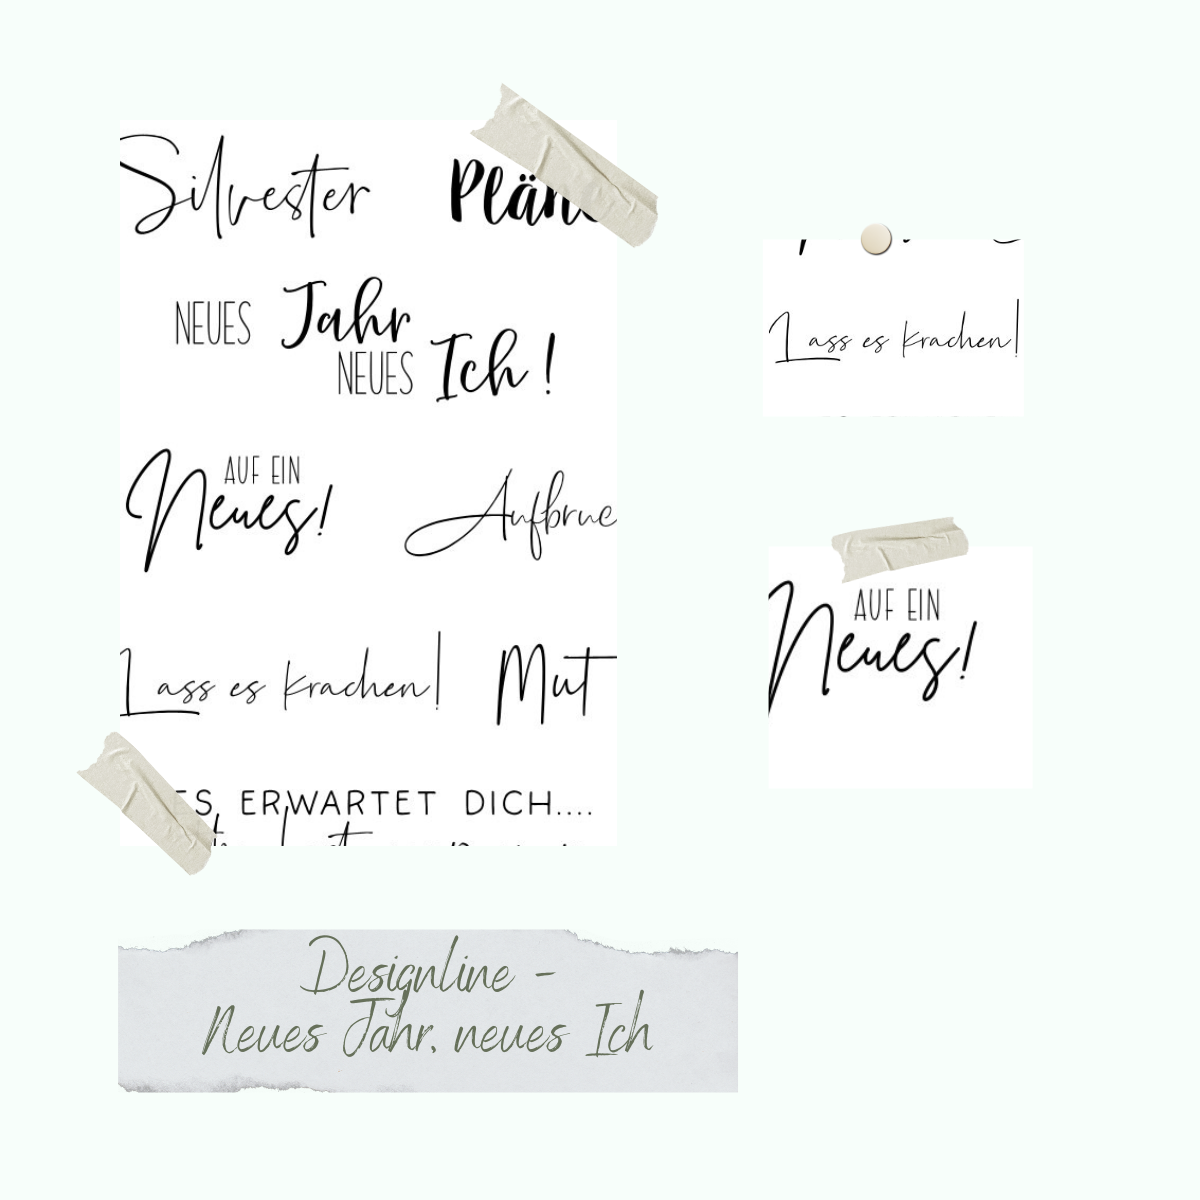 Silvester Plän
NEUES Jahr
NEUES Ich!
AUF EIN
Neues!
Aufbruc
Lass es krachen! Mut
ES ERWARTET DICH....
Lass es krachen!
AUF EIN
Neues!
Designline -
Neues Jahr, neues Ich